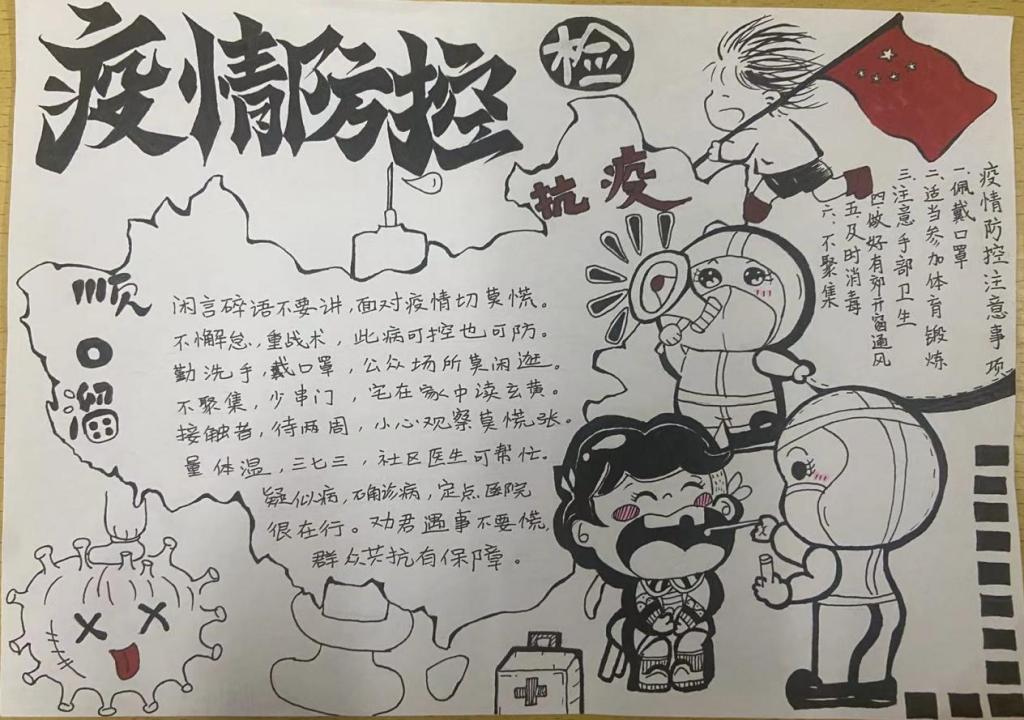 疫情防控
检
抗疫
顺口溜
闲言碎语不要讲，面对疫情切莫慌。
不懈怠，重战术，此病可控也可防。
勤洗手，戴口罩，公众场所莫闲逛。
不聚集，少串门，宅在家中读玄黄。
接触者，待两周，小心观察莫慌张。
量体温，三七三，社区医生可帮忙。
疑似病，确诊病，定点医院
很在行。劝君遇事不要慌，
群众共抗有保障。
疫情防控注意事项
一.佩戴口罩
二.适当参加体育锻炼
三.注意手部卫生
四.做好有郊开窗通风
五.及时消毒
六.不聚集